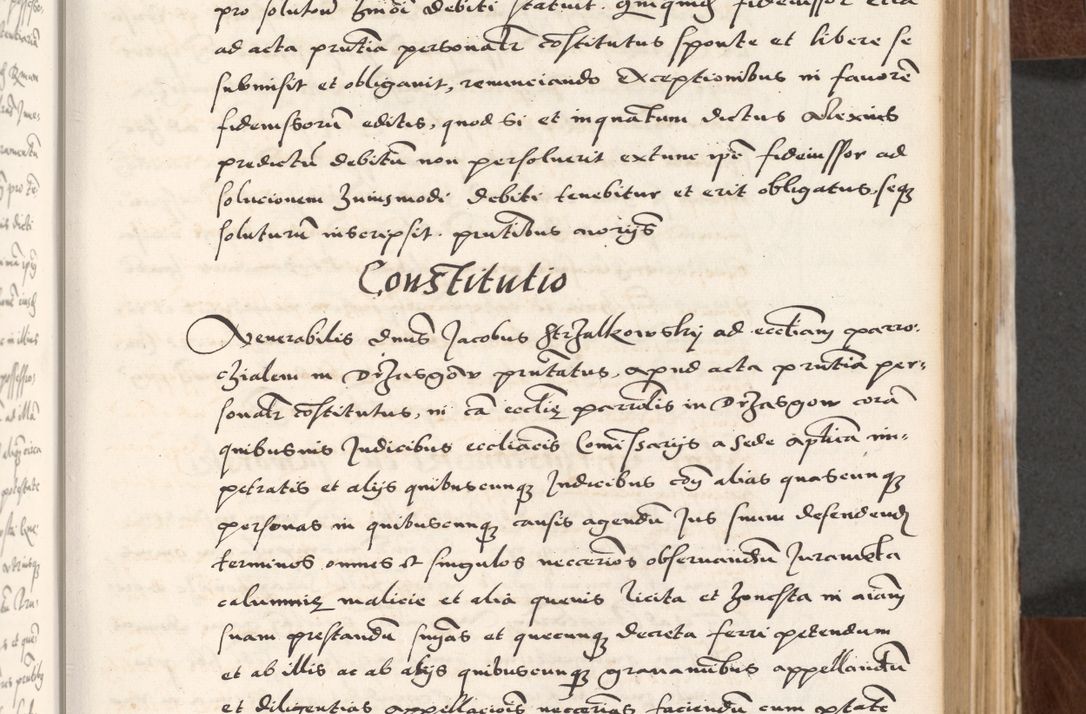 pro solutoῡ huiōi debiti statuit. Quiquid fideiussor
ad acta pn̄tia personalr̄ cōstitutus sponte et libere se
submisit et obligavit, renunciando exceptionibus in favorē
fideiussorū editis, quod si et inquātum dictus Alexius
predictū debitū non persolverit extunc ipē fideiussor ad
solucionem huiusmodi debiti tenebitur et erit obligatus. seq
soluturū inscripsit. pn̄tibus
Constitutio
Venerabilis dnūs Jacobus Strzalkowskij ad eccliam parro-
chialem in Drzasgow pn̄tatus, apud acta pn̄tia per-
sonalr̄ cōstitutus, in cā ecclię parrolis in Drzasgow corā
quibusvis Judicibus eccliacis Comissarijs a Sede Aplica im-
petratis et alijs quibuscunq Judicibus cōn alias quascunq
personas in quibuscunq causis agendū Jus suum defendendū
terminos omnes et singulos neccerios observandū Juramēta
calumnię malicie et alia quevis licita et honesta in aiam
suam prestandū snīas et quecunq decreta ferri petendum
et ab illis ac ab alijs quibuscunq gravamībus appellandū
et diligentias appellaciōis neccerias faciendū cum ptāte